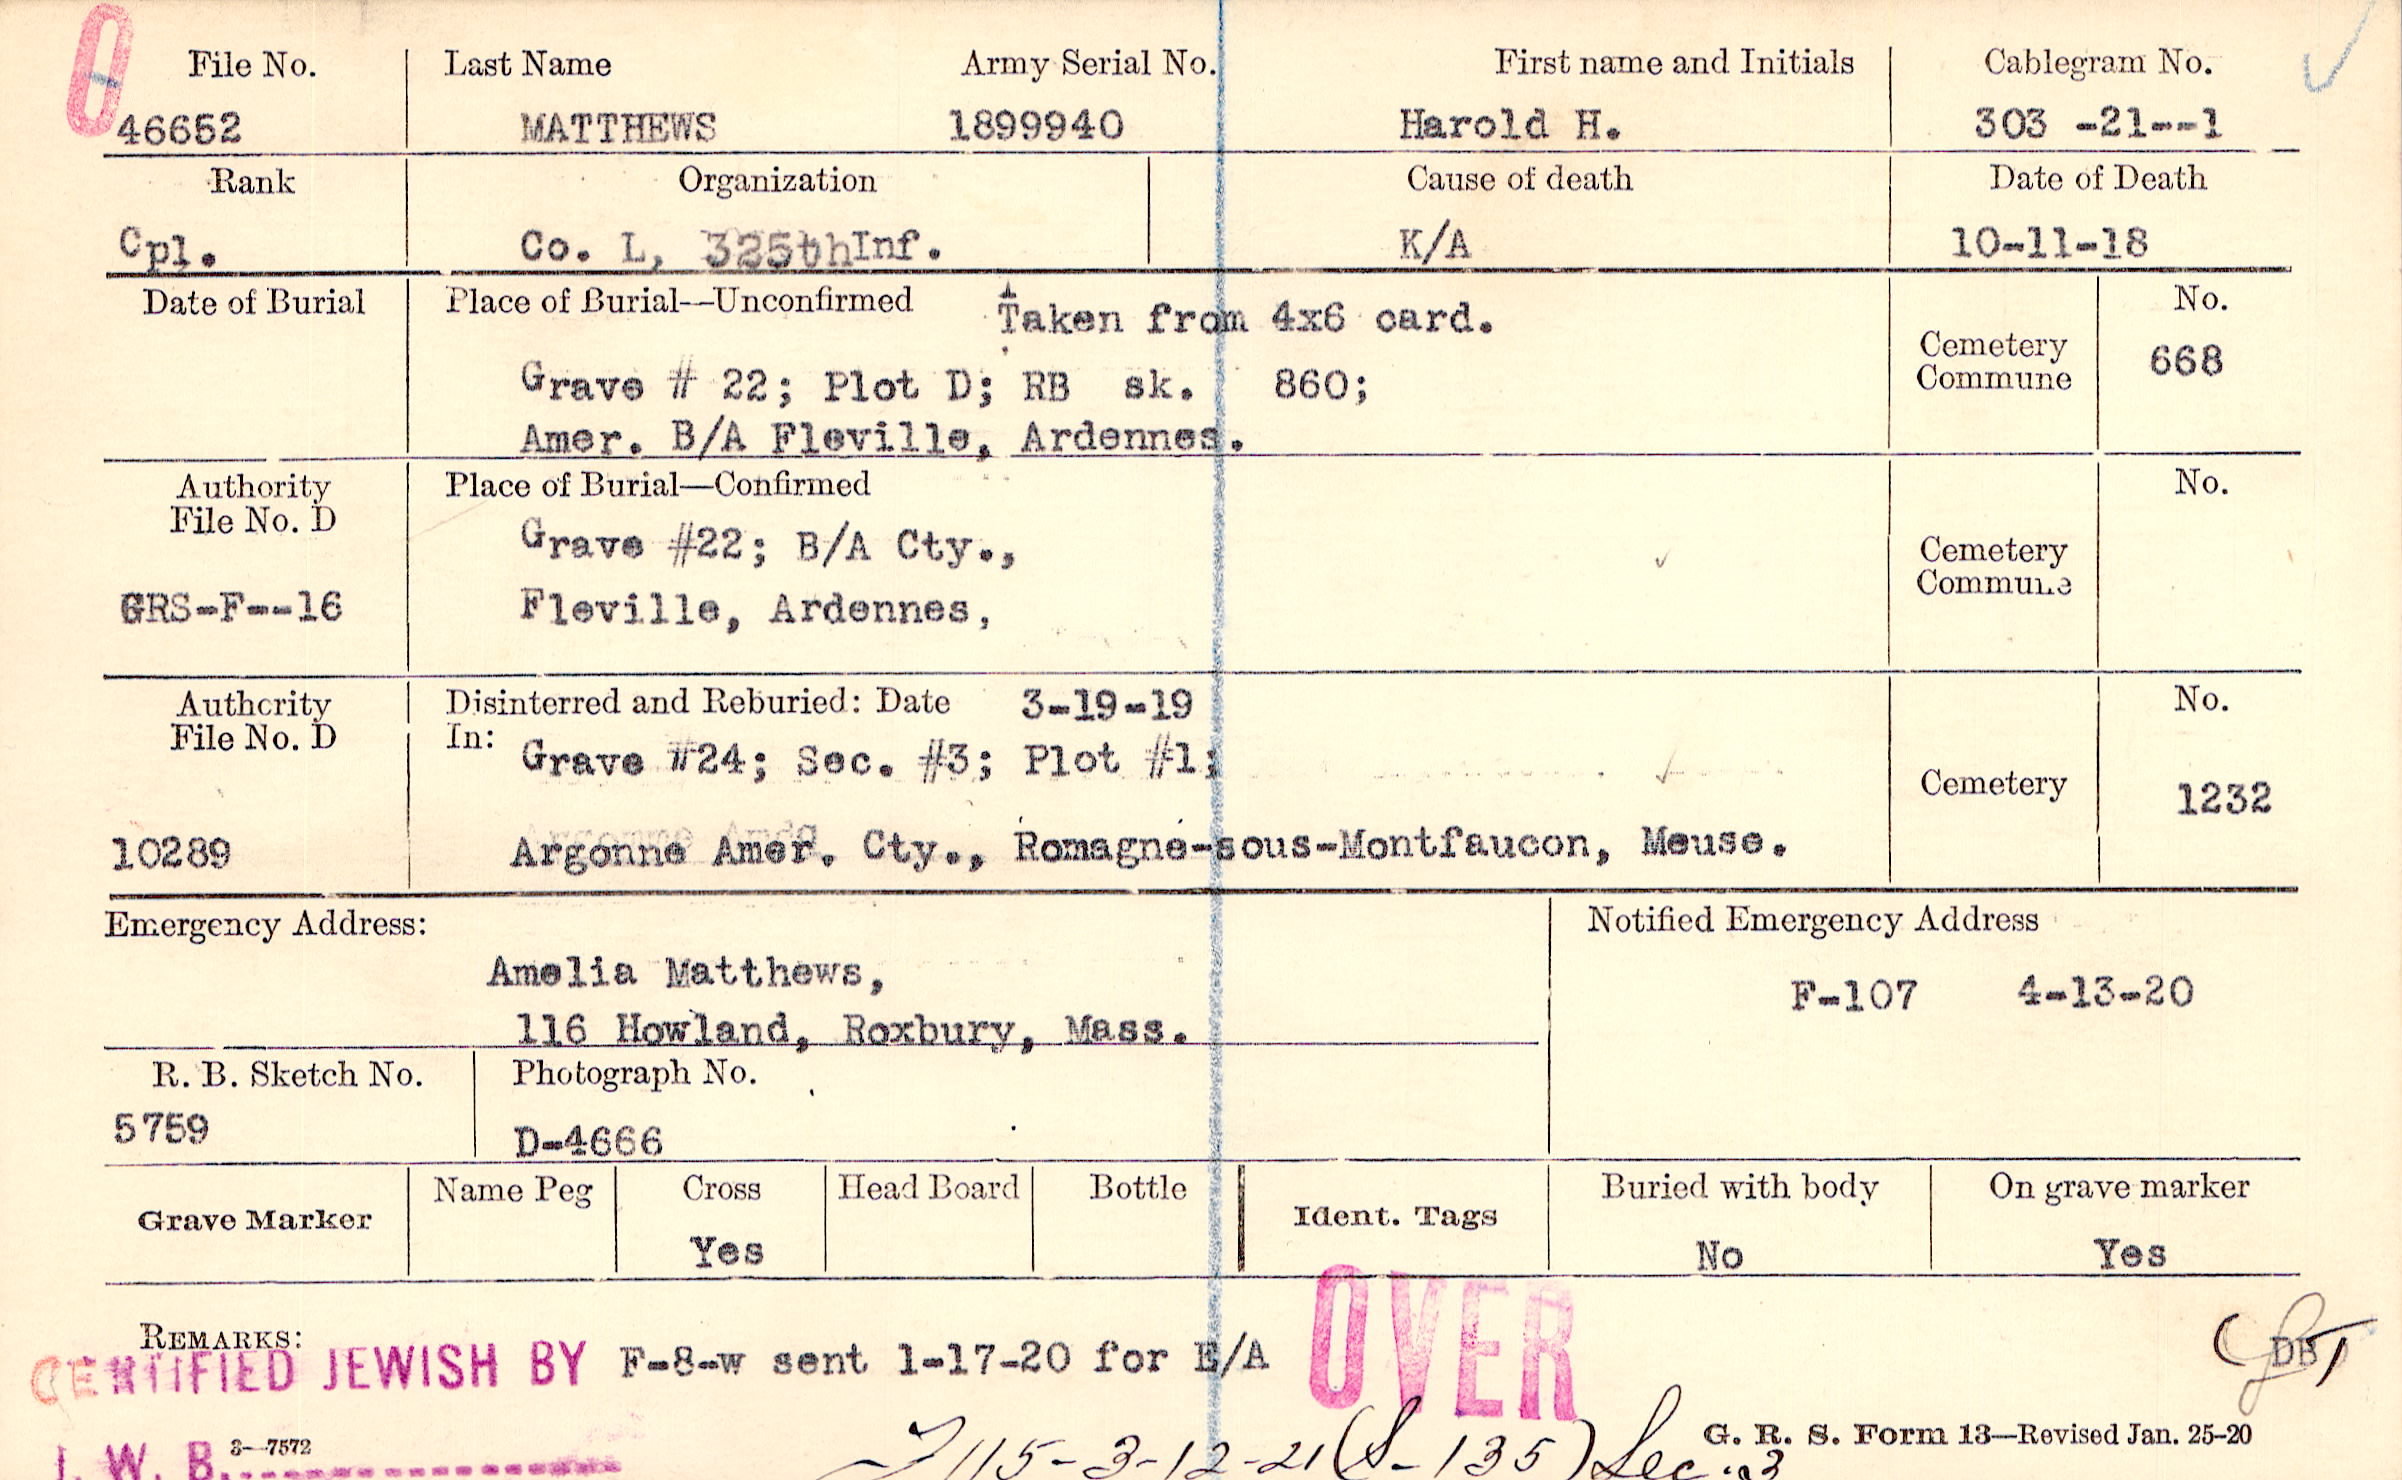 File No. Last Name Army Serial No. First name and Initials Cablegram No.
46652 MATTHEWS 1899940 Harold H. 303 -21--1
Rank Organization Cause of death Date of Death
Cpl. Co. L, 325th Inf. K/A 10-11-18
Date of Burial Place of Burial--Unconfirmed Taken from 4x6 card. No.
Cemetery Commune 668
Grave # 22; Plot D; RB sk. 860;
Amer. B/A Fleville, Ardennes.
Authority File No. D Place of Burial—Confirmed No.
Grave #22; B/A Cty., Cemetery Commune
GRS-F--16 Fleville, Ardennes,
Authority File No. D Disinterred and Reburied: Date 3-19-19 No.
In: Grave #24; Sec. #3; Plot #1; Cemetery 1232
10289 Argonne Amer. Cty., Romagne-sous-Montfaucon, Meuse.
Emergency Address: Notified Emergency Address
Amelia Matthews, F-107 4-13-20
116 Howland, Roxbury, Mass.
R. B. Sketch No. Photograph No.
5759 D-4666
Grave Marker Name Peg Cross Head Board Bottle Ident. Tags Buried with body On grave marker
Yes No Yes
OVER
REMARKS:
CERTIFIED JEWISH BY F-8-w sent 1-17-20 for E/A
DB
J. W. B. 3—7572
115-3-12-21 (S-135) Sec. 3
G. R. S. Form 13—Revised Jan. 25-20